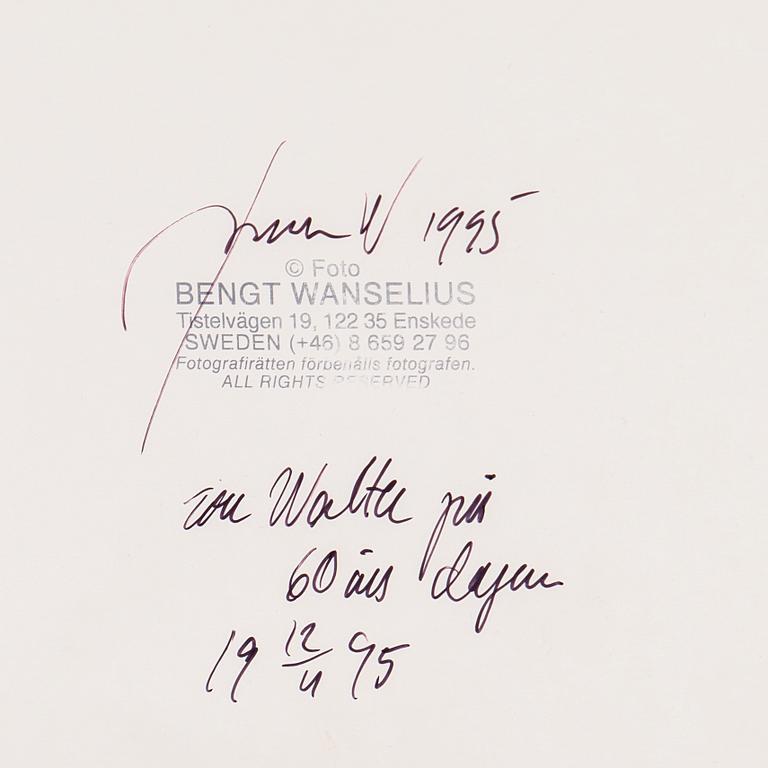 W 1995
© Foto
BENGT WANSELIUS
Tistelvägen 19, 122 35 Enskede
SWEDEN (+46) 8 659 27 96
Fotografirätten förbehålls fotografen.
ALL RIGHTS RESERVED
Walter på
60 års dagen
19 12/11 95